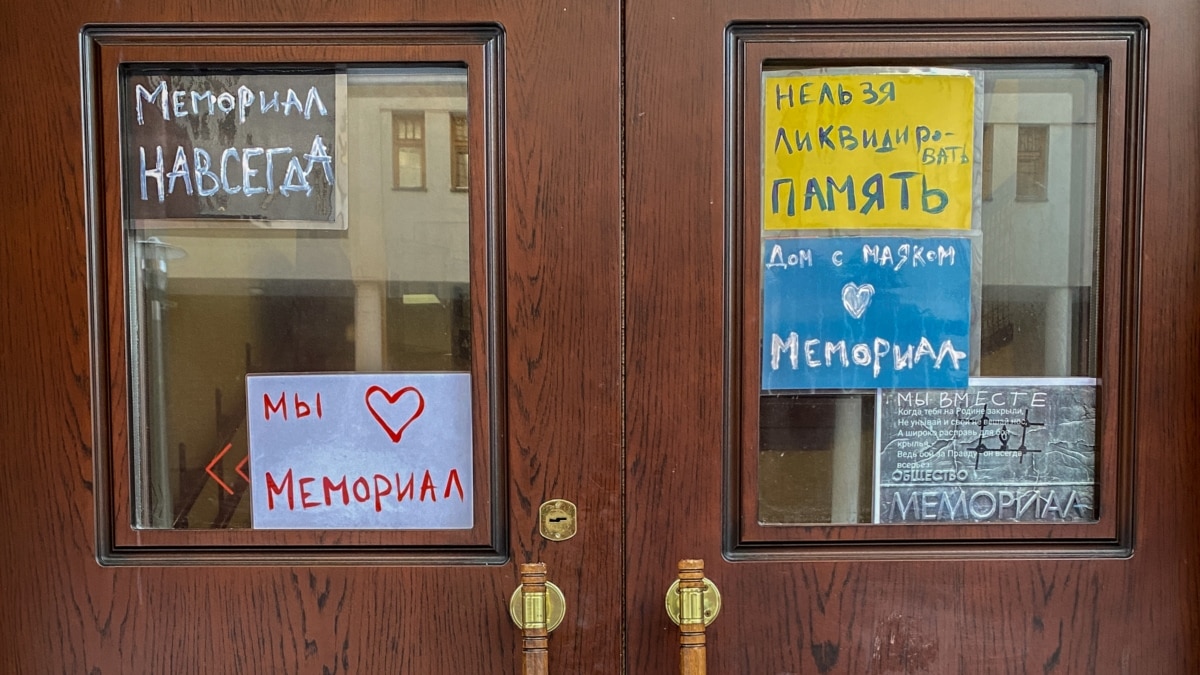 МЕМОРИАЛ
НАВСЕГДА
МЫ
МЕМОРИАЛ
НЕЛЬЗЯ
ЛИКВИДИРО-
ВАТЬ
ПАМЯТЬ
Дом с маяком
МЕМОРИАЛ
МЫ ВМЕСТЕ
Когда тебя на Родине закрыли,
Не унывай и свой не вешай но
А широко расправь для боя
крылья
Ведь бой за Правду - он всегда
всерьёз.
ОБЩЕСТВО
МЕМОРИАЛ